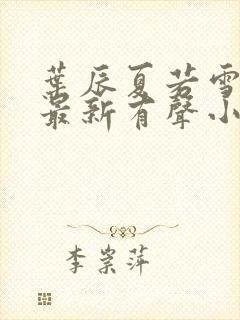 葉辰夏若雪
最新有聲小
李崇萍